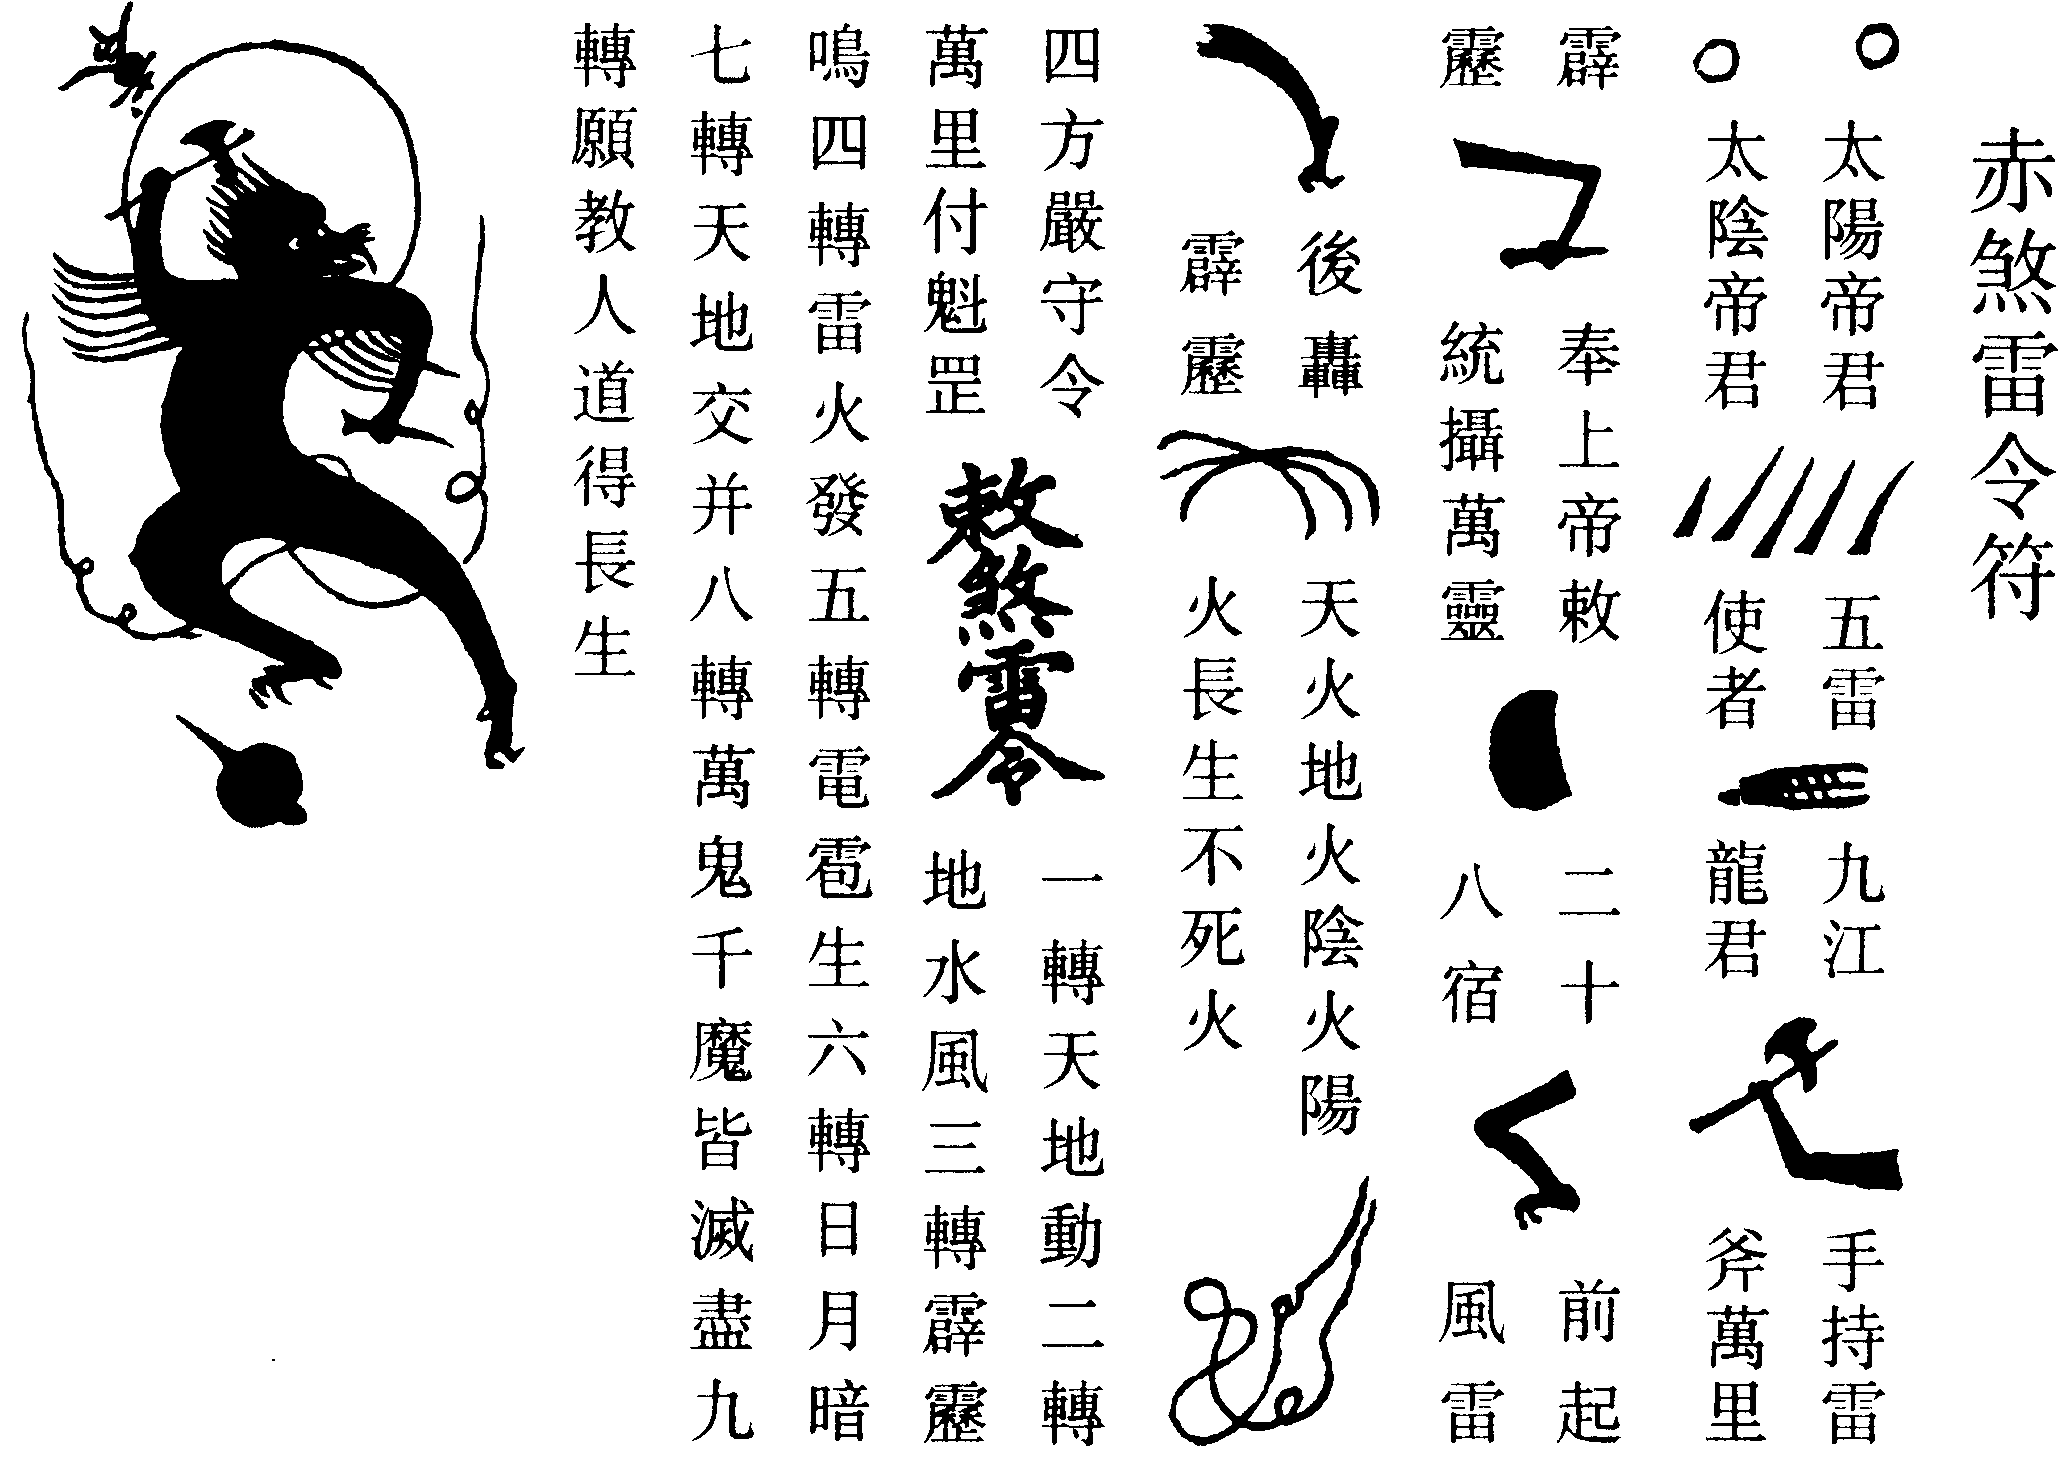 赤煞雷令符
太陽帝君
太陰帝君
五雷
使者
九江
龍君
手持雷
斧萬里
霹
靂
奉上帝敕
統攝萬靈
二十
八宿
前起
風雷
後轟
霹靂
天火地火陰火陽
火長生不死火
四方嚴守令
萬里付魁罡
敕煞雷令
一轉天地動二轉
地水風三轉霹靂
鳴四轉雷火發五轉電雹生六轉日月暗
七轉天地交并八轉萬鬼千魔皆滅盡九
轉願教人道得長生